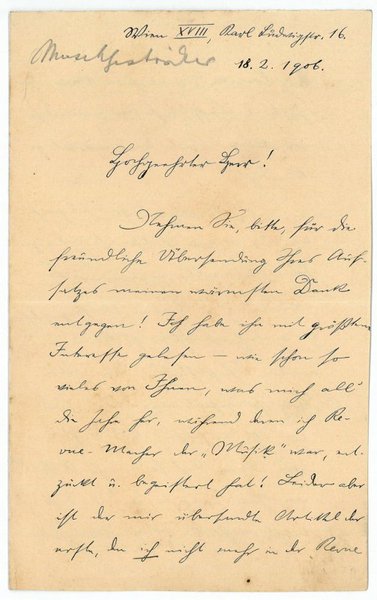 Wien XVIII, Karl Ludwigstr. 16.
18. 2. 1906.
Hochgeehrter Herr!
Nehmen Sie, bitte, für die
freundliche Übersendung Ihres Auf-
satzes meinen wärmsten Dank
entgegen! Ich habe ihn mit größtem
Interesse gelesen – wie schon so
vieles von Ihnen, was mich all'
die Jahre her, während deren ich Re-
vue-Macher der „Musik" war, ent-
zückt u. begeistert hat! Leider aber
ist der mir übersandte Artikel der
erste, den ich nicht mehr in der Revue